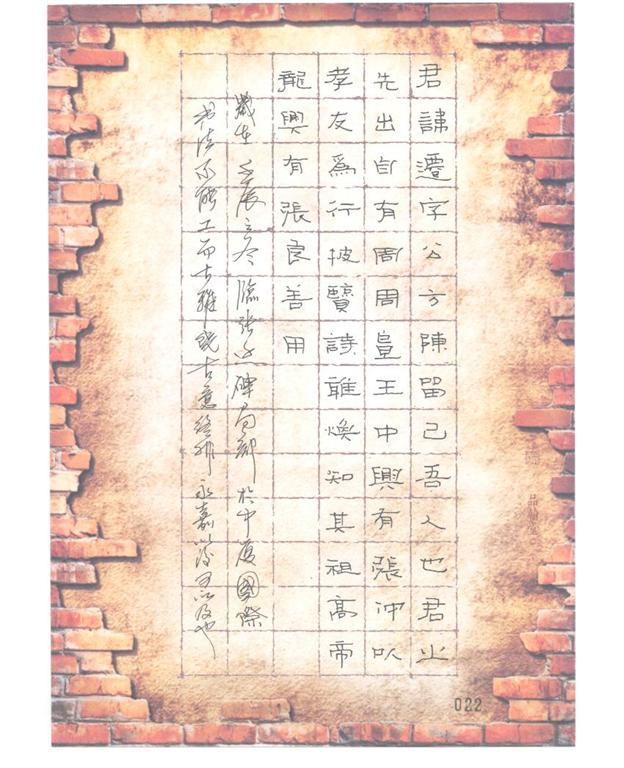 君諱遷字公方陳留己吾人也君之
先出自有周周宣王中興有張仲以
孝友爲行披覽詩雅煥知其祖高帝
龍興有張良善用
歲在壬辰立冬臨張遷碑局部於中廈國際
书法不能工而古雅饒古意終非永嘉以後可以及也
022